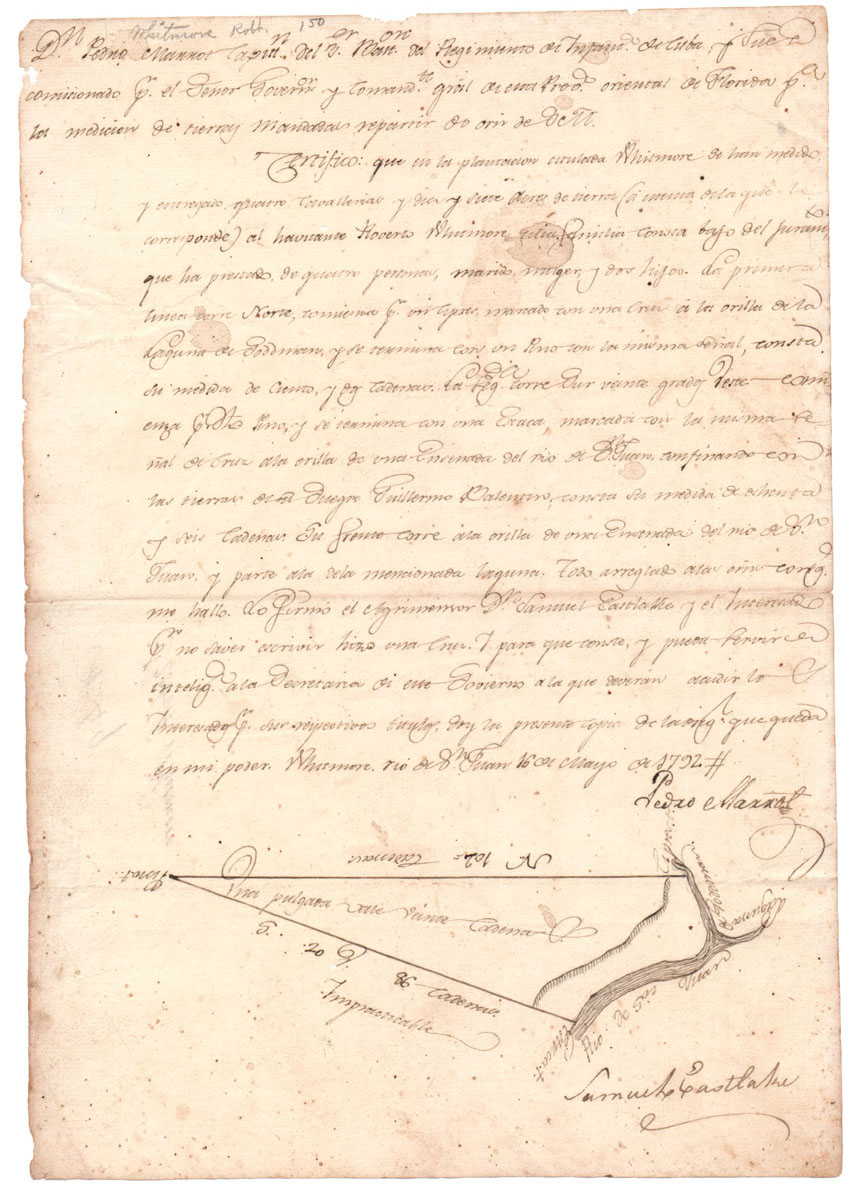 Whitmore Robt. 150
Dn Pedro Marrot Capitn. del 3r. Batn. del Regimiento de Infanta. de Cuba, y Juez
comicionado pr. el Señor Governr. y Comandte. gral de esta Prova. oriental de Florida pa.
las medicion de tierras mandadas repartir de orn de S. M.
Certifico: que en la plantacion titulada Whitmore se han medido
y entregado quatro Cavallerias y diez y siete Acres de tierra (a cuenta de la que le
corresponde) al havitante Roverto Whitmore cuia familia consta bajo del juramto.
que ha prestado, de quatro personas, marido, muger, y dos hijos. La primera
linea corre Norte, comienza pr. un Cipres, marcado con una Cruz á la orilla de la
Laguna de Goddman, y se termina con un Pino con la misma señal, consta
su medida de Ciento, y dos Cadenas. La segda. corre Sur veinte grados Oeste comi
enza pr. dho Pino, y se termina con una Estaca, marcada con la misma se-
ñal de Cruz á la orilla de una Ensenada del rio de Sn. Juan, confinando con
las tierras de Guillermo Valentin, consta su medida de ochenta
y seis Cadenas. Su frente corre á la orilla de una Ensenada del rio de Sn.
Juan, y parte á la de la mencionada laguna. Todo arreglado a las orns. con q.
me hallo. Lo firmó el Agrimensor Dn. Samuel Eastlake y el Interesado
pr. no saver escrivir hizo una Cruz. I para que conste, y pueda servir de
inteliga. a la Secretaria de este Govierno a la que deverán acudir los
Interesados pr. sus respectivos titulos, doy la presente copia de la orign. que queda
en mi poder. Whitmore, rio de Sn. Juan 16 de Mayo de 1792 #
Pedro Marrot
N. 102 Cadenas.
Pino
Cipres
Una pulgada vale veinte Cadenas
S. 20 O.
86 Cadenas.
Impracticable
Estaca
Rio de Sn. Juan
Laguna
Samuel Eastlake